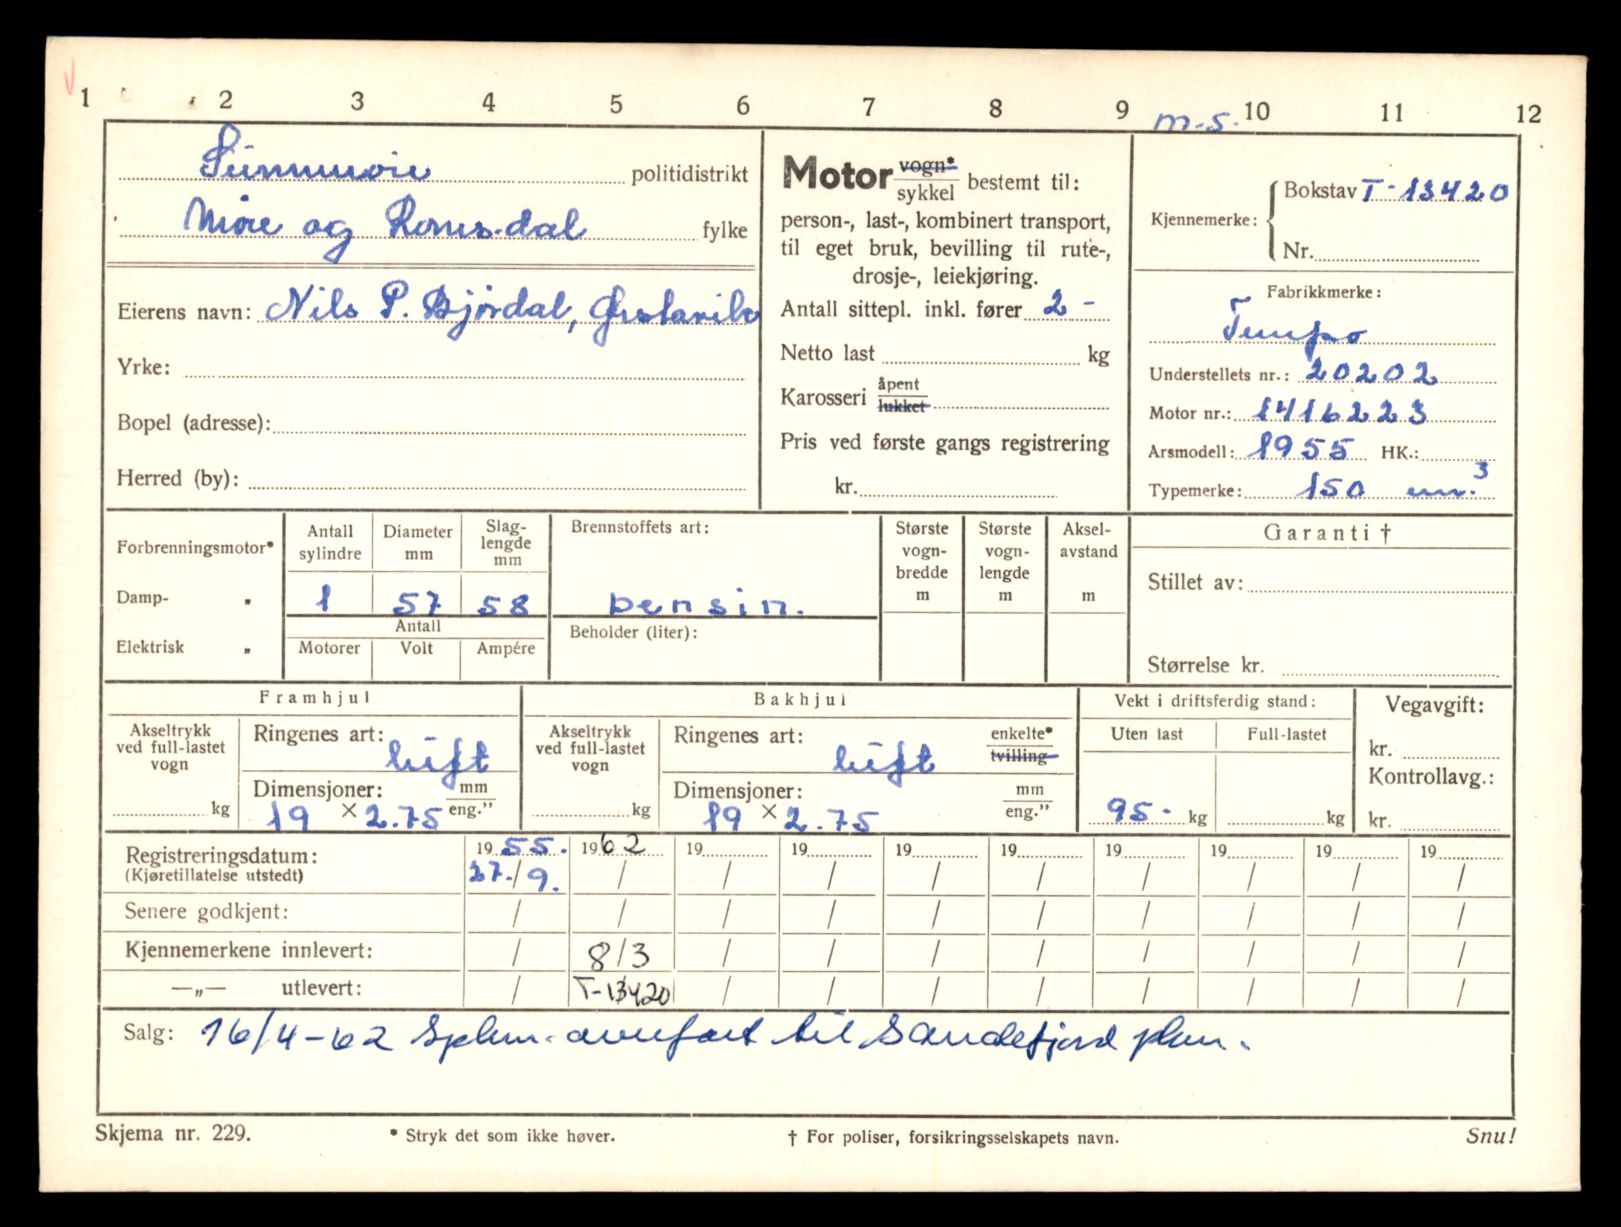 1 2 3 4 5 6 7 8 9 10 11 12
m-s.
Sunnmøre politidistrikt
Møre og Romsdal fylke
Eierens navn: Nils P. Bjørdal, Ørstavik
Yrke:
Bopel (adresse):
Herred (by):
Motor vogn* sykkel bestemt til:
person-, last-, kombinert transport,
til eget bruk, bevilling til rute-,
drosje-, leiekjøring.
Antall sittepl. inkl. fører 2 -
Netto last kg
Karosseri åpent lukket
Pris ved første gangs registrering
kr.
Kjennemerke: Bokstav T-13420
Nr.
Fabrikkmerke:
Tempo
Understellets nr.: 20202
Motor nr.: 1416223
Årsmodell: 1955 HK.:
Typemerke: 150 cm.3
Forbrenningsmotor*
Damp- "
Elektrisk "
Antall sylindre
1
Diameter mm
57
Slaglengde mm
58
Antall
Motorer Volt Ampére
Brennstoffets art:
bensin.
Beholder (liter):
Største vogn-bredde m
Største vogn-lengde m
Aksel-avstand m
Garanti †
Stillet av:
Størrelse kr.
Framhjul
Akseltrykk
ved full-lastet
vogn
kg
Ringenes art:
luft
Dimensjoner: mm eng."
19 × 2.75
Bakhjul
Akseltrykk
ved full-lastet
vogn
kg
Ringenes art: enkelte* tvilling
luft
Dimensjoner: mm eng."
19 × 2.75
Vekt i driftsferdig stand:
Uten last Full-lastet
95.- kg kg
Vegavgift:
kr.
Kontrollavg.:
kr.
Registreringsdatum: 1955. 1962 19 19 19 19 19 19 19 19
(Kjøretillatelse utstedt) 27./9. / / / / / / / / /
Senere godkjent: / / / / / / / / / /
Kjennemerkene innlevert: / 8/3 / / / / / / / /
—„— utlevert: / T-13420 / / / / / / / /
Salg: 16/4-62 Spkm. overført til Sandefjord pkm.
Skjema nr. 229. * Stryk det som ikke høver. † For poliser, forsikringsselskapets navn. Snu!